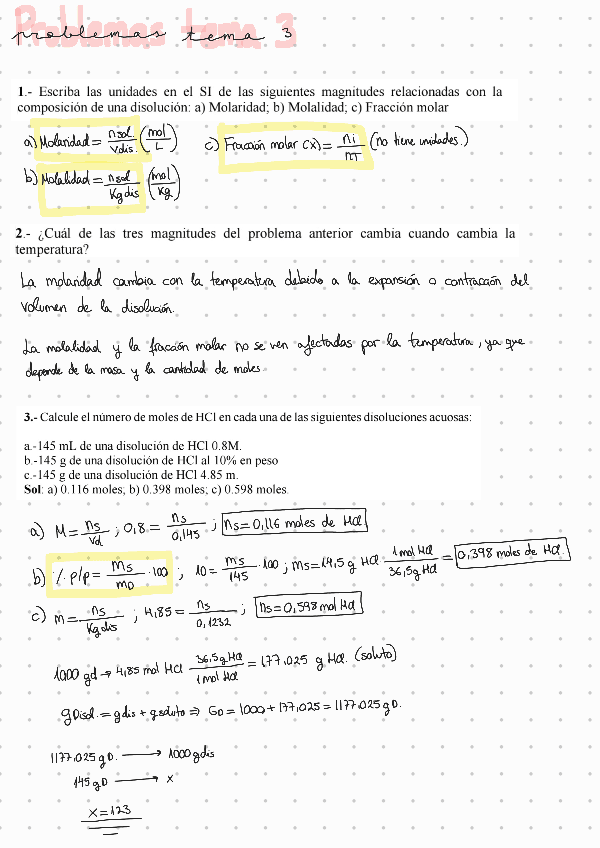 Problemas tema 3
problemas tema 3
1.- Escriba las unidades en el SI de las siguientes magnitudes relacionadas con la
composición de una disolución: a) Molaridad; b) Molalidad; c) Fracción molar
a) Molaridad = nsol/Vdis. (mol/L)
c) Fracción molar (X) = ni/nT (no tiene unidades.)
b) Molalidad = nsol/Kg dis (mol/Kg)
2.- ¿Cuál de las tres magnitudes del problema anterior cambia cuando cambia la
temperatura?
La molaridad cambia con la temperatura debido a la expansión o contracción del
volumen de la disolución.
La molalidad y la fracción molar no se ven afectadas por la temperatura, ya que
depende de la masa y la cantidad de moles.
3.- Calcule el número de moles de HCl en cada una de las siguientes disoluciones acuosas:
a.-145 mL de una disolución de HCl 0.8M.
b.-145 g de una disolución de HCl al 10% en peso
c.-145 g de una disolución de HCl 4.85 m.
Sol: a) 0.116 moles; b) 0.398 moles; c) 0.598 moles.
a) M = ns/Vd ; 0,8 = ns/0,145 ; ns = 0,116 moles de HCl
b) % p/p = ms/mD · 100 ; 10 = ms/145 · 100 ; ms = 14,5 g HCl · 1 mol HCl/36,5 g HCl = 0,398 moles de HCl.
c) m = ns/Kg dis ; 4,85 = ns/0,1232 ; ns = 0,598 mol HCl
1000 gd → 4,85 mol HCl 36,5 g HCl/1 mol HCl = 177,025 g HCl. (soluto)
gDisol. = gdis + gsoluto ⇒ GD = 1000 + 177,025 = 1177,025 gD.
1177,025 g D. → 1000 g dis
145 g D → x
x = 123